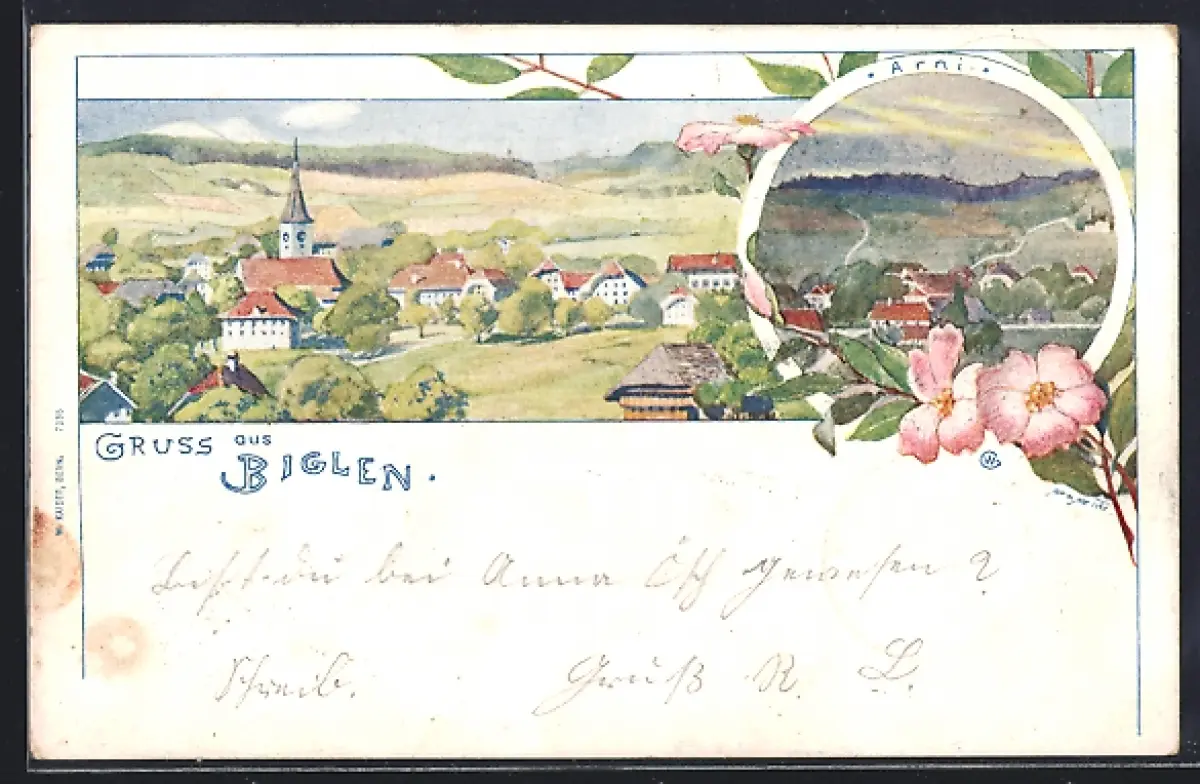 Arni.
GRUSS aus BIGLEN.
W. KAISER, BERN.
Bist du bei Anna Ösch gewesen?
Schreib.
Gruß R. L.